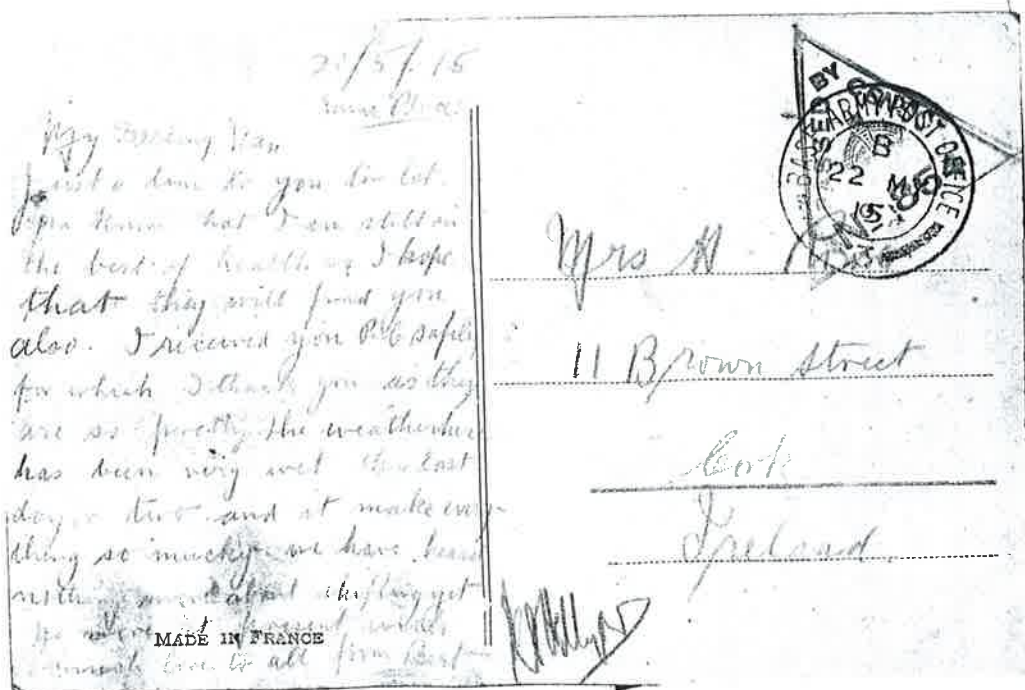 20/5/15
Same Place
My
Just a line to you to let
you know that I am still in
the best of health as I hope
that they will find you
also. I received your P.C safely
for which I thank you as they
are so pretty the weather here
has been very wet the last
day or two and it make every
thing so mucky we have heard
nothing more about shifting yet
no more at present
love to all from Bert
MADE IN FRANCE
PASSED BY CENSOR
BASE ARMY POST OFFICE
B
22 MY
15
Mrs H.
11 Brown Street
Cork
Ireland.